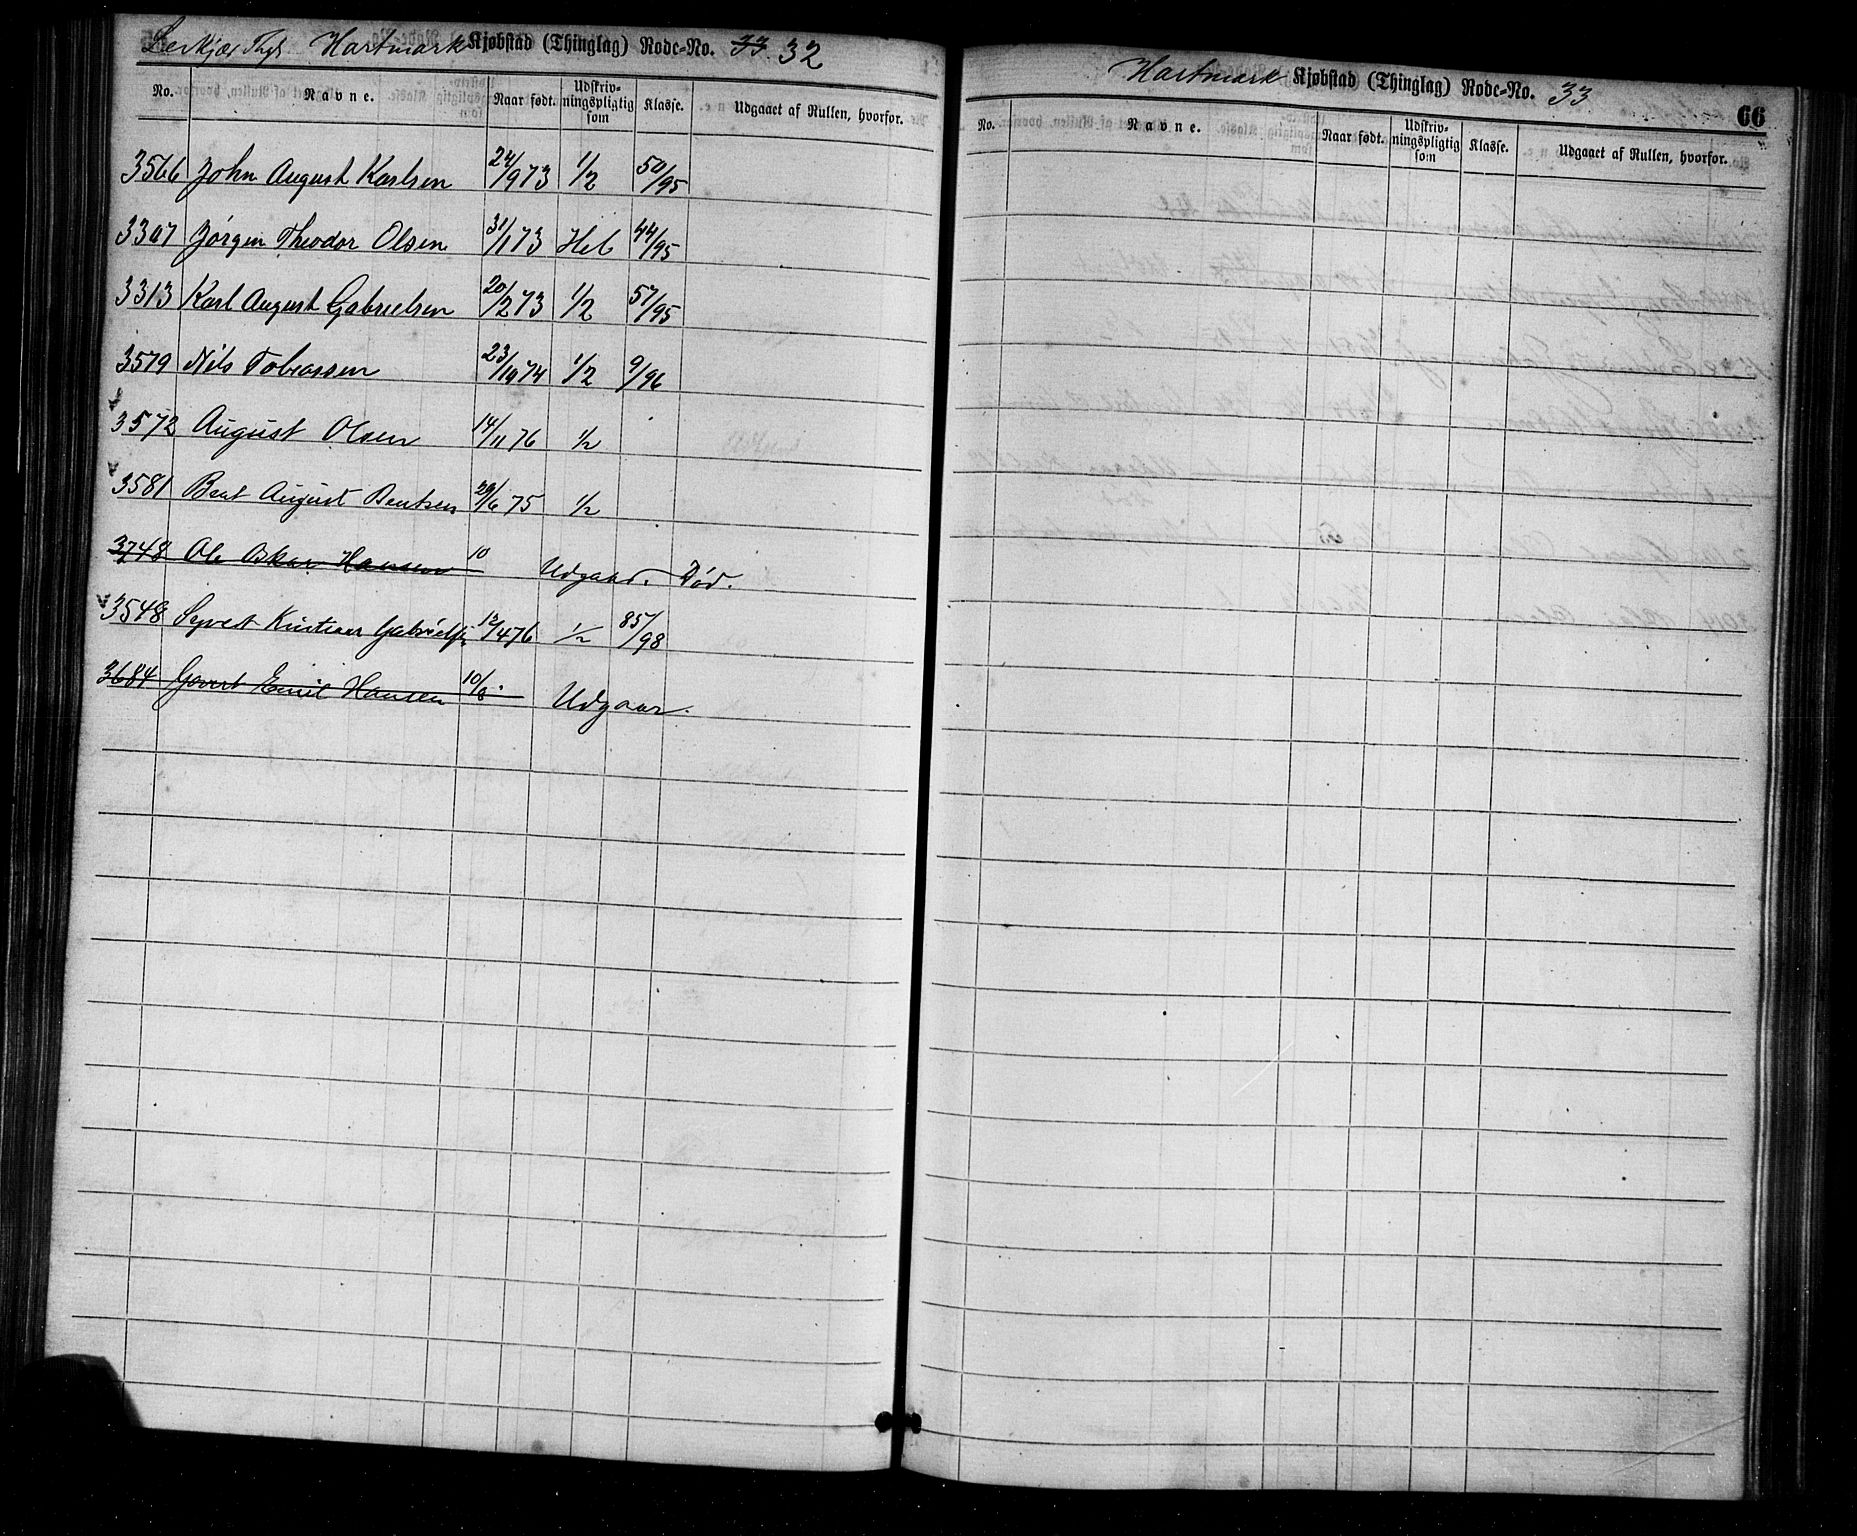 Hartmark Kjøbstad (Thinglag) Rode-No. 33 32
No. Navne. Naar født. Udskriv-ningspligtig som Klasse. Udgaaet af Rullen, hvorfor.
3566 John August Karlsen 24/9 73 1/2 50/95
3307 Jørgen Theodor Olsen 31/1 73 Hel 44/95
3313 Karl August Gabrielsen 20/2 73 1/2 57/95
3579 Nils Tobiassen 23/10 74 1/2 9/96
3572 August Olsen 14/11 76 1/2
3581 Bent August Bentsen 29/6 75 1/2
3748 Ole Oskar Hansen 10 Udgaar. Død.
3548 Syvert Kristian Gabriels. 12/4 76 1/2 85/98
3684 Govert Emil Hansen 10/8 Udgaar.
Hartmark Kjøbstad (Thinglag) Rode-No. 33
66
No. Navne. Naar født. Udskriv-ningspligtig som Klasse. Udgaaet af Rullen, hvorfor.